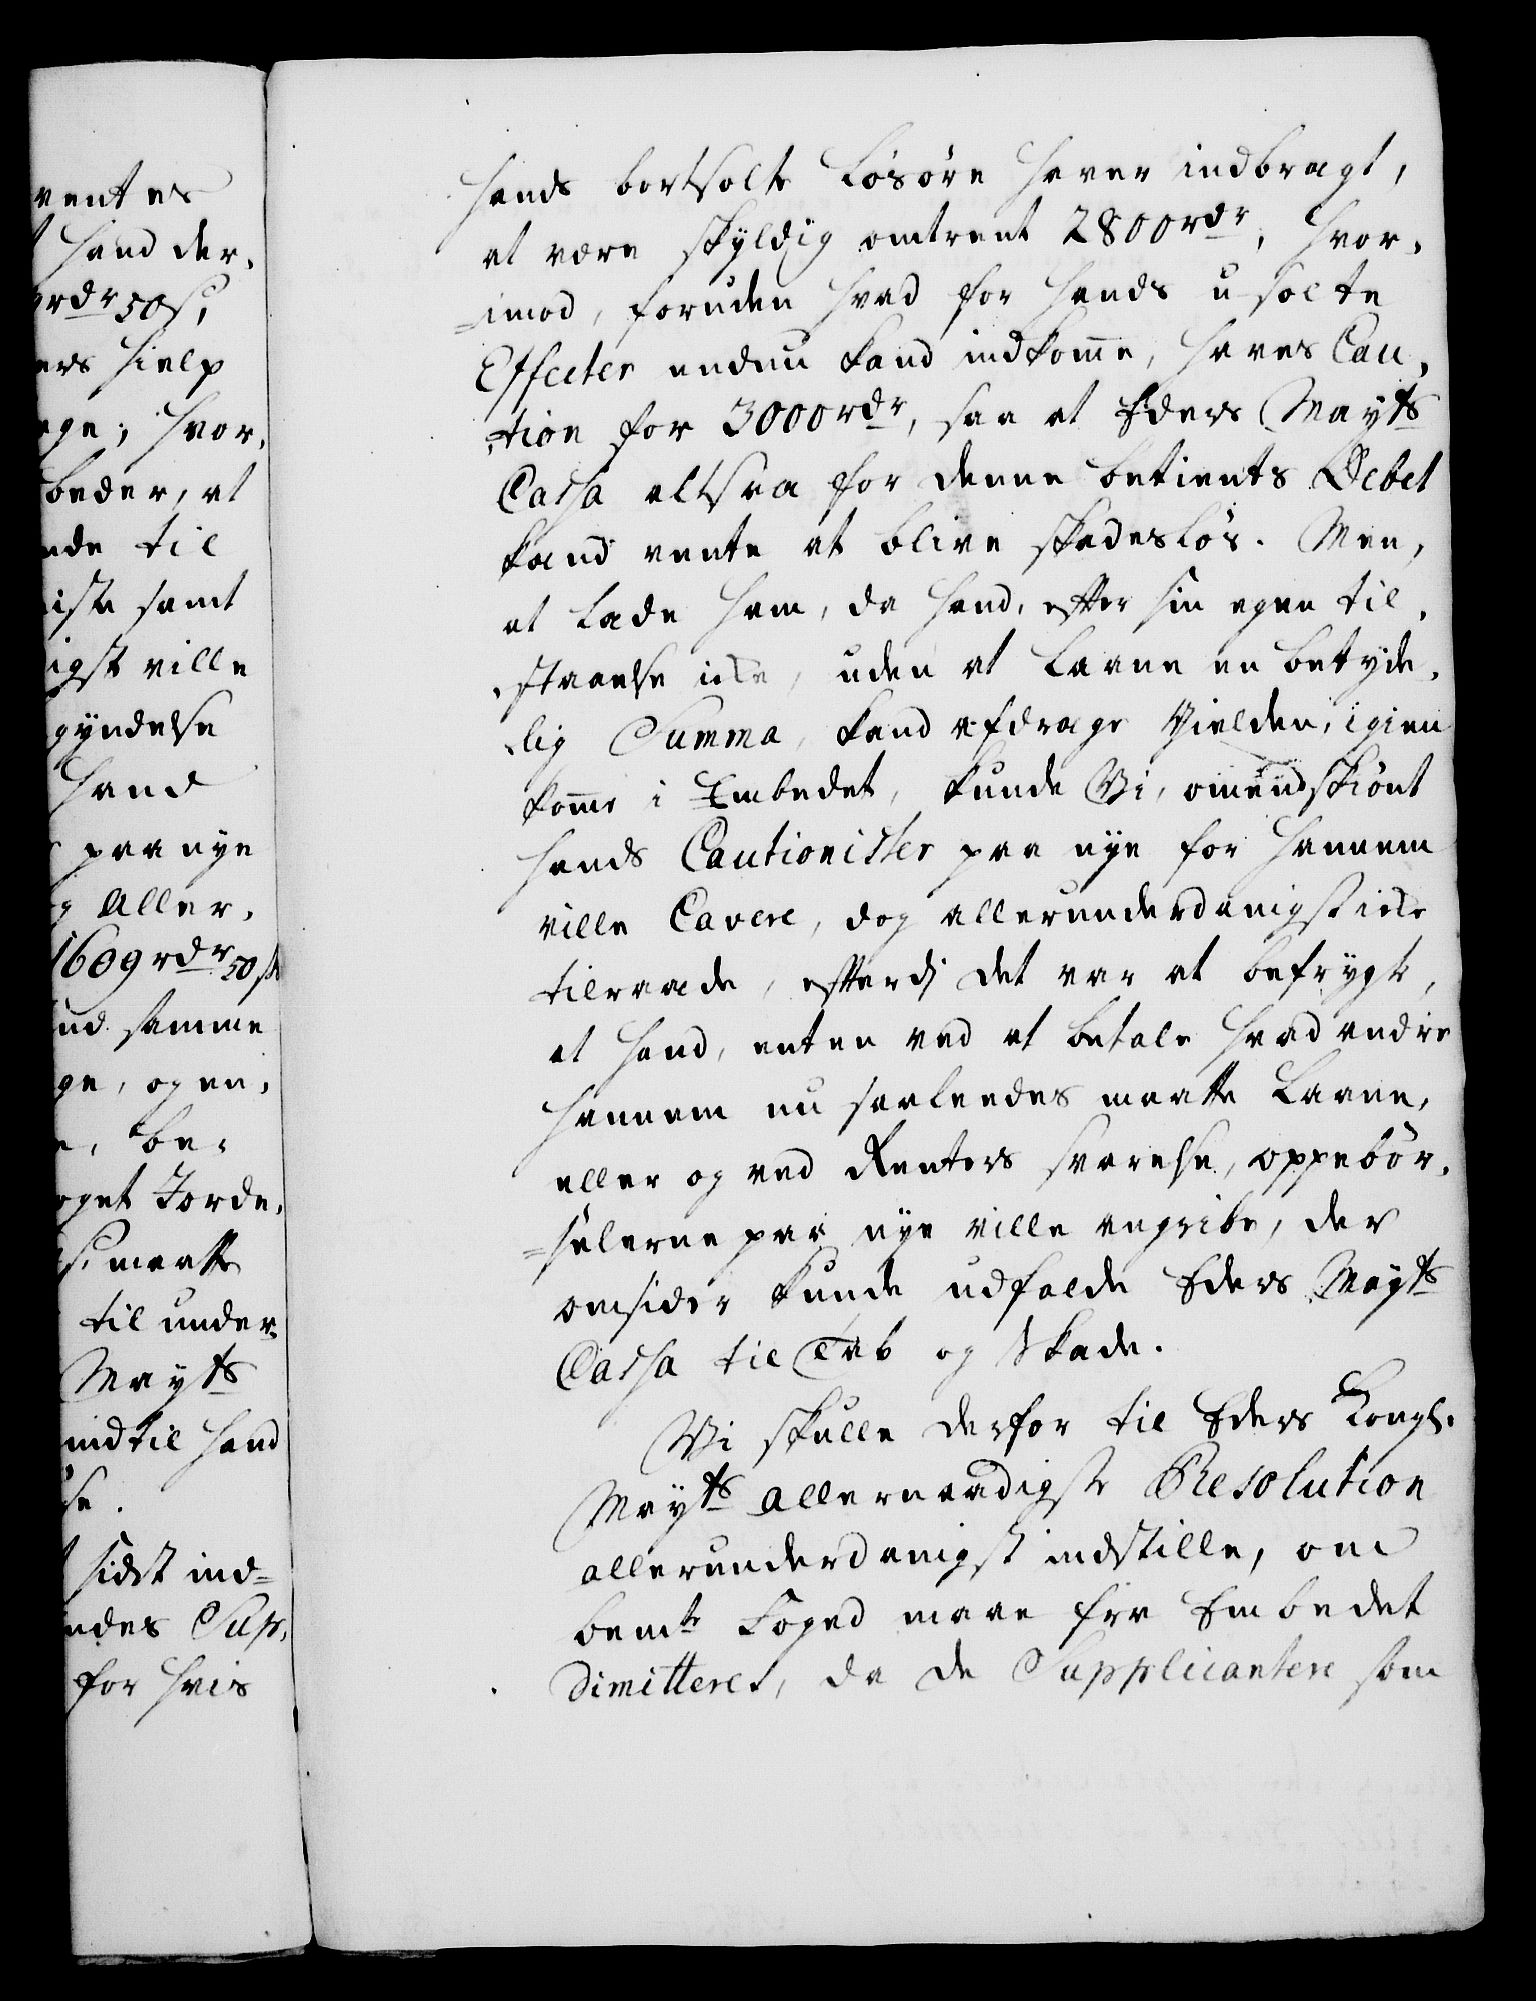 ventes
hand der,
rdr 50 s,
ers hielp
ge; hvor,
beder, at
nde til
iste samt
igst ville
gyndelse
hand
paa nye
g Aller,
1609 rdr 50 s
ind samme
ge, og en,
e, be,
get Jorde,
s. maatte
til under,
Mayts
indtil hand
se.
sidst ind=
ndes Sup,
for hvis
hands bortsolte Løsøre haver indbragt,
at være skyldig omtrent 2800 rdr, hvor,
=imod, foruden hvad for hands u-solte
Effecter endnu kand indkomme, haves Cau,
,tion for 3000 rdr, saa at Eders Mayts
Cassa altsaa for denne betients Debet
kand vente at blive skadesløs. Men,
at lade ham, da hand, efter sin egen til,
,staaelse icke, uden at laane en betyde,
,lig Summa, kand afdrage Gielden, igien
komme i Embedet, kunde Vi, omendskiønt
hands Cautionister paa nye for hannem
ville Cavere, dog allerunderdanigst icke
tilraade, efterdi det var at befrygte,
at hand, enten ved at betale hvad andre
hannem nu saaleedes maatte Laane,
eller og ved Renters svarelse, oppebør,
=selerne paa nye ville angribe, der
omsider kunde udfalde Eders Mayts
Cassa til Tab og Skade.
Vi skulle derfor til Eders Kongl.
Mayts Allernaadigste Resolution
allerunderdanigst indstille, om
bemte Foged maae fra Embedet
Dimitteres, da de Supplicantere som